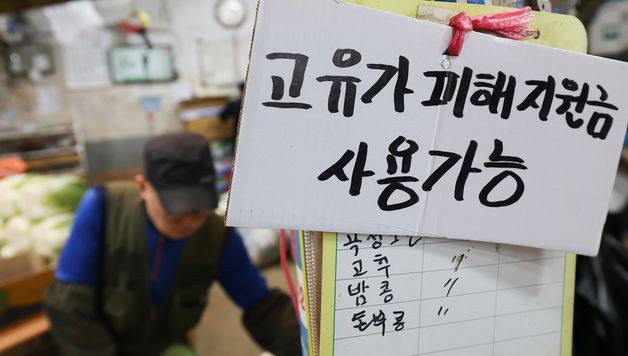 고유가 피해지원금
사용가능
고추 〃
밤콩 〃